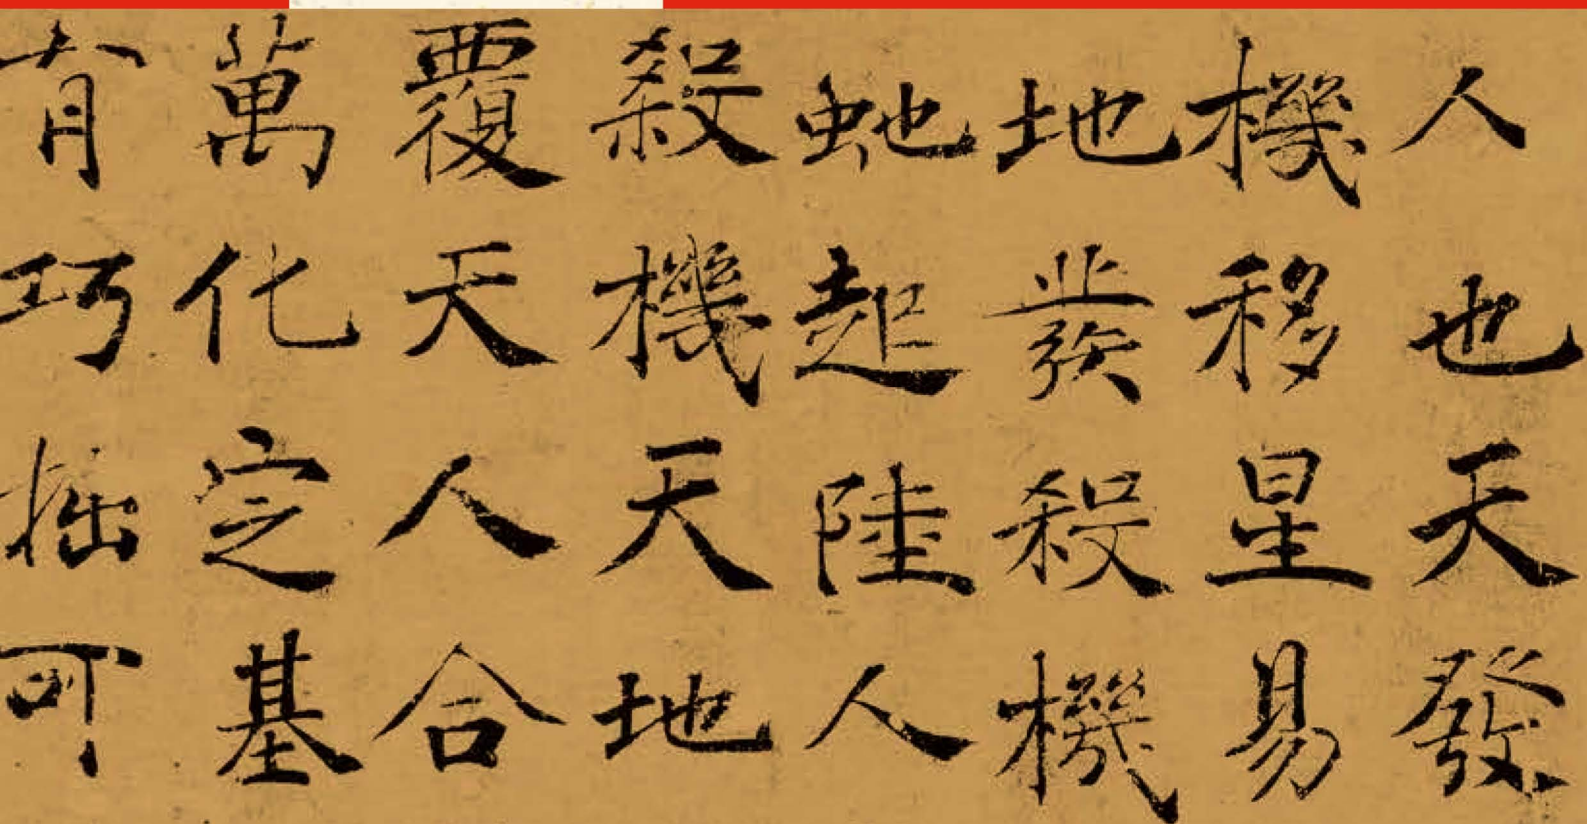 人也天發
機移星易
地發殺機
虵起陸人
殺機天地
覆天人合
萬化定基
有巧拙可